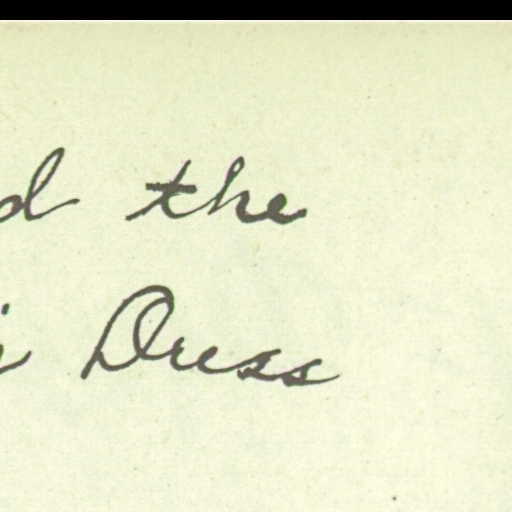 d the
Dress